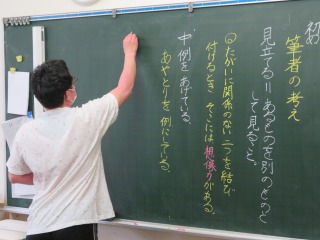 初め
筆者の考え
見立てる＝あるものを別のものと
して見ること。
たがいに関係のない二つを結び
付けるとき、そこには想像力がある。
中 例をあげている。
あやとりを例にしている。